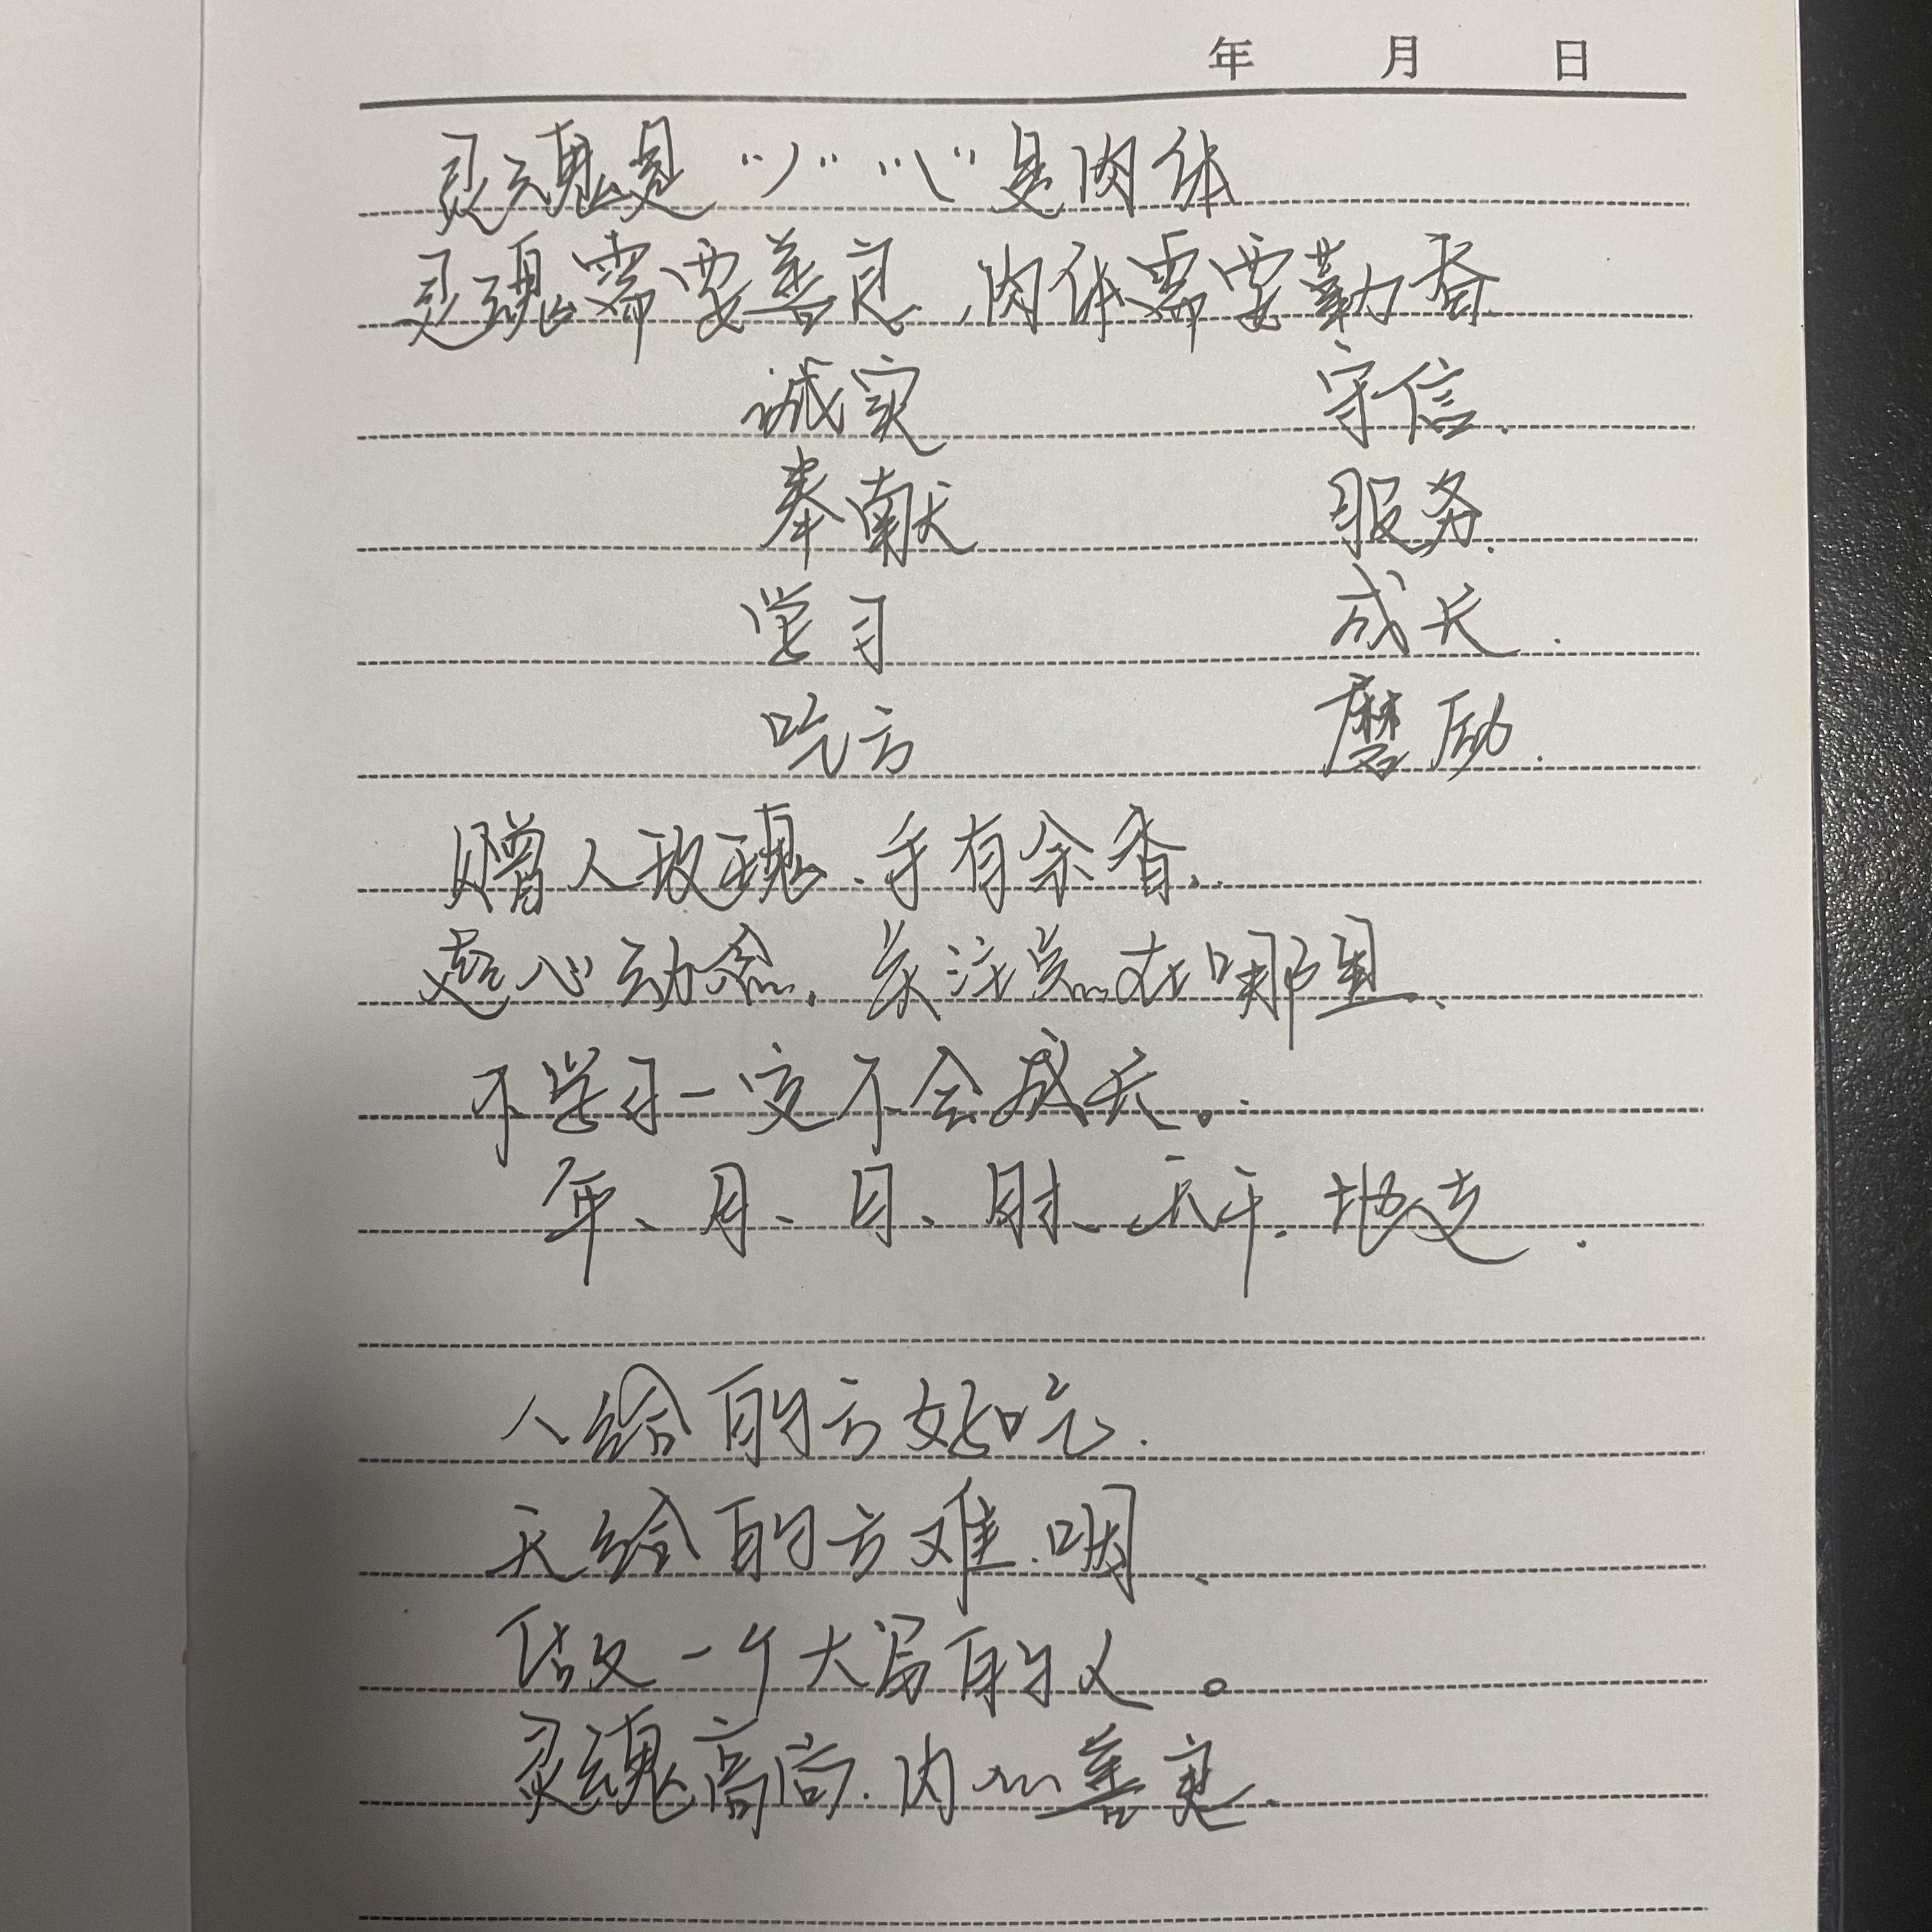 年 月 日
灵魂是“丿”“乀”是肉体
灵魂需要善良、肉体需要勤奋
诚实 守信.
奉献 服务.
学习 成长.
吃亏 磨励.
赠人玫瑰、手有余香、
起心动念、关注点在哪里、
不学习一定不会成长。
年、月、日、时、天干、地支.
人给的亏好吃.
天给的亏难咽、
做一个大写的人。
灵魂高尚、内心善良、